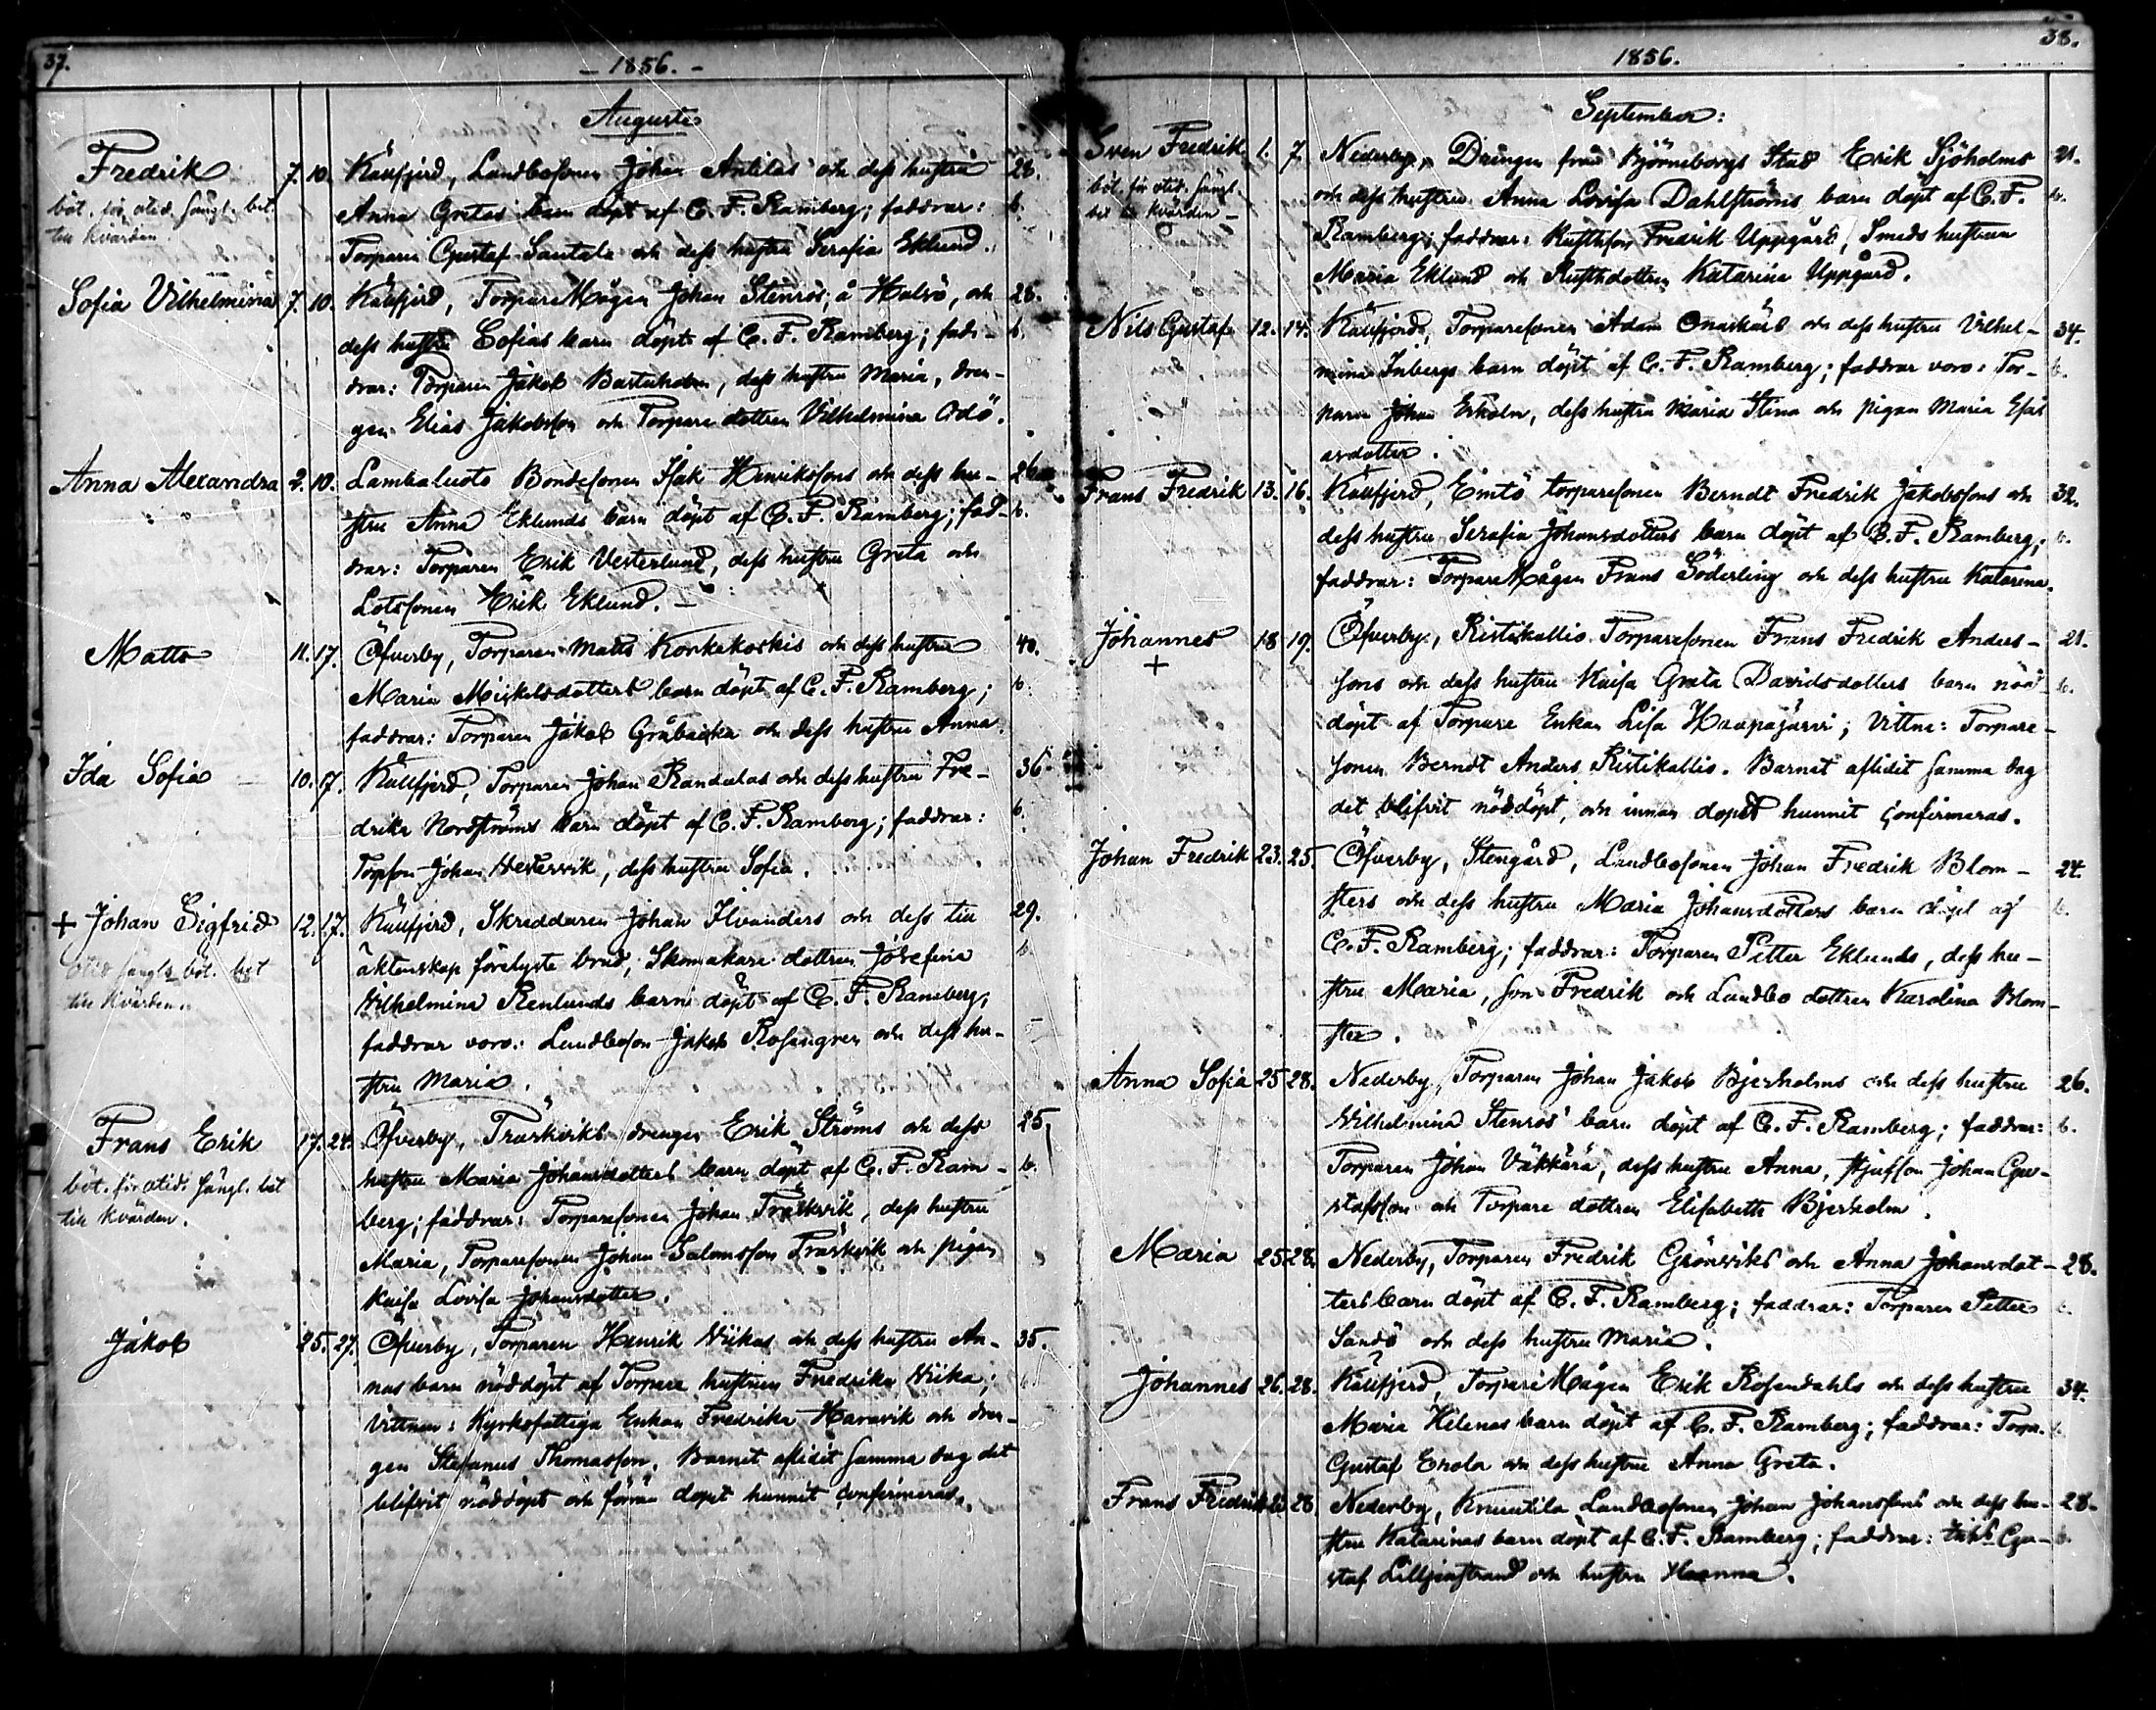 37.
- 1856. -
Augusti
Fredrik 7. 10. Källfjerd, Landbosonen Johan Antilas och dess hustru 28.
böt. för otid. sängl. bet. Anna Gretas barn döpt af C. F. Ramberg; faddrar: b.
till Kvarden. Torparen Gustaf Santala och dess hustru Serafia Eklund.
Sofia Vilhelmina 7. 10. Källfjerd, TorpareMågen Johan Stenros, å Halvö, och 28.
dess hustru Sofias barn döpt af C. F. Ramberg; fad- b.
drar: Torparen Jakob Bastuholm, dess hustru Maria, dren-
gen Elias Jakobsson och Torpare dottren Vilhelmina Odö.
Anna Alexandra 2. 10. Lambaluoto Bondesonen Isak Henrikssons och dess hu- 26
stru Anna Eklunds barn döpt af C. F. Ramberg; fad- b.
drar: Torparen Erik Vesterlund, dess hustru Greta och
Lotssonen Erik Eklund. -
Matts 11. 17. Öfverby, Torparen Matts Korkakoskis och dess hustru 40.
Maria Mickelsdotters barn döpt af C. F. Ramberg; b.
faddrar: Torparen Jakob Gråbacka och dess hustru Anna.
Ida Sofia 10. 17. Källfjerd, Torparen Johan Randalas och dess hustru Fre- 36.
drika Nordströms barn döpt af C. F. Ramberg; faddrar: b.
Torpson Johan Vestervik, dess hustru Sofia.
+ Johan Sigfrid 12. 17. Källfjerd, Skreddaren Johan Ilvanders och dess till 29.
otid. sängl. böt. bet äktenskap förelyste brud, Skomakare dottren Josefina b.
till Kvarden. Vilhelmina Renlunds barn döpt af C. F. Ramberg;
faddrar voro: Landboson Jakob Rosengren och dess hu-
stru Maria.
Frans Erik 17. 24. Öfverby, Träskviks drengen Erik Ströms och dess 25.
böt. för otid. sängl. bet hustru Maria Johansdotters barn döpt af C. F. Ram- b.
till Kvarden. berg; faddrar: Torparesonen Johan Träskvik, dess hustru
Maria, Torparesonen Johan Salomonsson Träskvik och pigan
Kaisa Lovisa Johansdotter.
Jakob 25. 27. Öfverby, Torparen Henrik Viikas och dess hustru An- 35.
nas barn nöddöpt af Torpare hustrun Fredrika Viika;
vittnen: Kyrkofattiga Enkan Fredrika Haravik och dren-
gen Stefanus Thomasson. Barnet aflidit samma dag det
blifvit nöddöpt och förrän dopet hunnit confirmeras.
38.
1856.
September:
Sven Fredrik 1. 7. Nederby, Drängen från Björneborgs Stad Erik Sjöholms 21.
böt. för otid. sängl. och dess hustru Anna Lovisa Dahlströms barn döpt af C. F. b.
bet till Kvarden - Ramberg; faddrar: Rusthson Fredrik Uppgård, Smeds hustrun
Maria Eklund och Rusthdottren Katarina Uppgård.
Nils Gustaf 12. 14. Källfjerd, Torparesonen Adam Onaskärs och dess hustru Vilhel- 34.
mina Inbergs barn döpt af C. F. Ramberg; faddrar voro: Tor- b.
paren Johan Erholm, dess hustru Maria Stina och pigan Maria Esai
asdotter.
Frans Fredrik 13. 16. Källfjerd, Emtö torparesonen Berndt Fredrik Jakobssons och 32.
dess hustru Serafia Johansdotters barn döpt af C. F. Ramberg; b.
faddrar: TorpareMågen Frans Söderling och dess hustru Katarina.
Johannes 18 19. Öfverby, Ristikallio Torparesonen Frans Fredrik Anders- 21.
+ sons och dess hustru Kaisa Greta Davidsdotters barn nöd b.
döpt af Torpare Enkan Lisa Haapajärvi; Vittne: Torpare-
sonen Berndt Anders Ristikallio. Barnet aflidit samma dag
det blifvit nöddöpt, och innan dopet hunnit confirmeras.
Johan Fredrik 23. 25. Öfverby, Stengård, Landbosonen Johan Fredrik Blom- 24.
sters och dess hustru Maria Johansdotters barn döpt af b.
C. F. Ramberg; faddrar: Torparen Petter Eklunds, dess hu-
stru Maria, son Fredrik och Landbo dottren Karolina Blom-
ster.
Anna Sofia 25 28. Nederby, Torparen Johan Jakob Bjerholms och dess hustru 26.
Vilhelmina Stenros' barn döpt af C. F. Ramberg; faddrar: b.
Torparen Johan Väkkärä, dess hustru Anna, stjufson Johan Gu-
stafsson och Torpare dottren Elisabeth Bjerholm.
Maria 25 28. Nederby, Torparen Fredrik Grönviks och Anna Johansdot- 28.
ters barn döpt af C. F. Ramberg; faddrar: Torparen Petter b.
Sandö och dess hustru Maria.
Johannes 26. 28. Källfjerd, TorpareMågen Erik Rosendahls och dess hustru 34.
Maria Helenas barn döpt af C. F. Ramberg; faddrar: Torp. b.
Gustaf Erola och dess hustru Anna Greta.
Frans Fredrik 28 Nederby, Knuutila Landbosonen Johan Johanssons och dess hu- 28.
stru Katarinas barn döpt af C. F. Ramberg; faddrar: Gu- b.
staf Liljestrand och hustru Hanna.